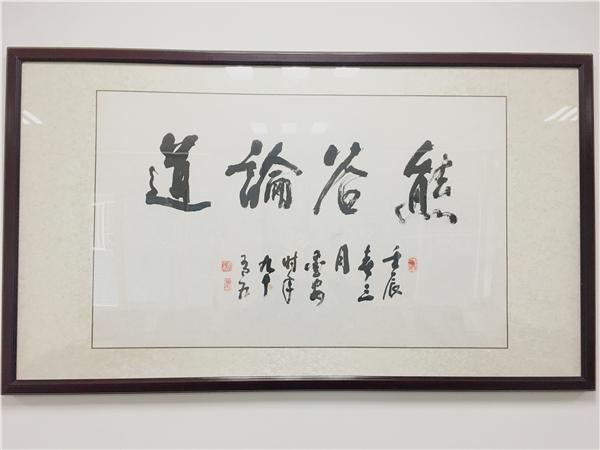 熊谷論道
壬辰
春三
月
时年
九十